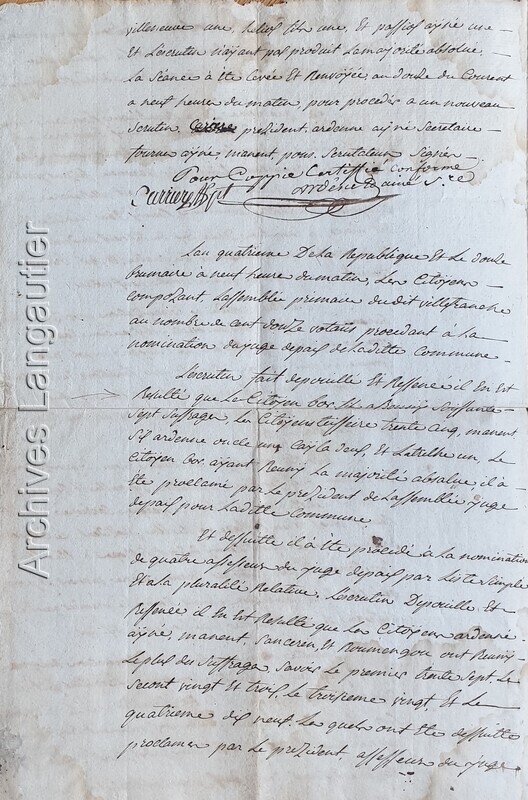 villeneuve une, helies une, Et passios ayné une
Et Lescrutin n'ayant pas produit La majorité absolue,
La Séance à êté Levée Et Renvoyée au douse du Courent
a neuf heure du matin, pour procéder a un nouveau
scrutin, president, ardenne ayné Secretaire
ayné, manent, pous, scrutateur Signés
Pour Coppie Certiffié Conforme
Carriere ardene ainé S.re
Lan quatrieme De La Republique Et Le douse
brumaire à neuf heure du matin, Les Citoyens
composant Lassemblée primaire du dit villefranche
au nombre de cent douze votans procédant à La
nomination du juge de paix de Laditte Commune
Lescrutin fait depouillé Et Ressencé il En Est
Resulté que Le Citoyen bos a Reuny Soissante
Sept Suffrages, Les Citoyens teisseire trente Cinq, manent
Six ardenne oncle une Cayla deux, Et Latrelhe un, Le
Citoyen bos ayant Reuny La majorité absolue, il à
êté proclamé par Le president de Lassemblée juge
de paix pour Laditte Commune
Et dessuitte il à êté procédé à La nomination
de quatre assesseurs du juge de paix par Liste Simple
Et a La pluralité Relative, Lescrutin Depouillé Et
Ressencé il En Est Resulté que Les Citoyens ardenne
ayné, manent, Sanceren, Et Roumengou ont Reuny
Le plus des Suffrages Savoir Le premier trente Sept, Le
Second vingt Et trois, Le troisieme vingt, Et Le
quatrieme dix neuf, Les quels ont êté dessuitte
proclamés par Le president, assesseurs du juge
Archives Langautier